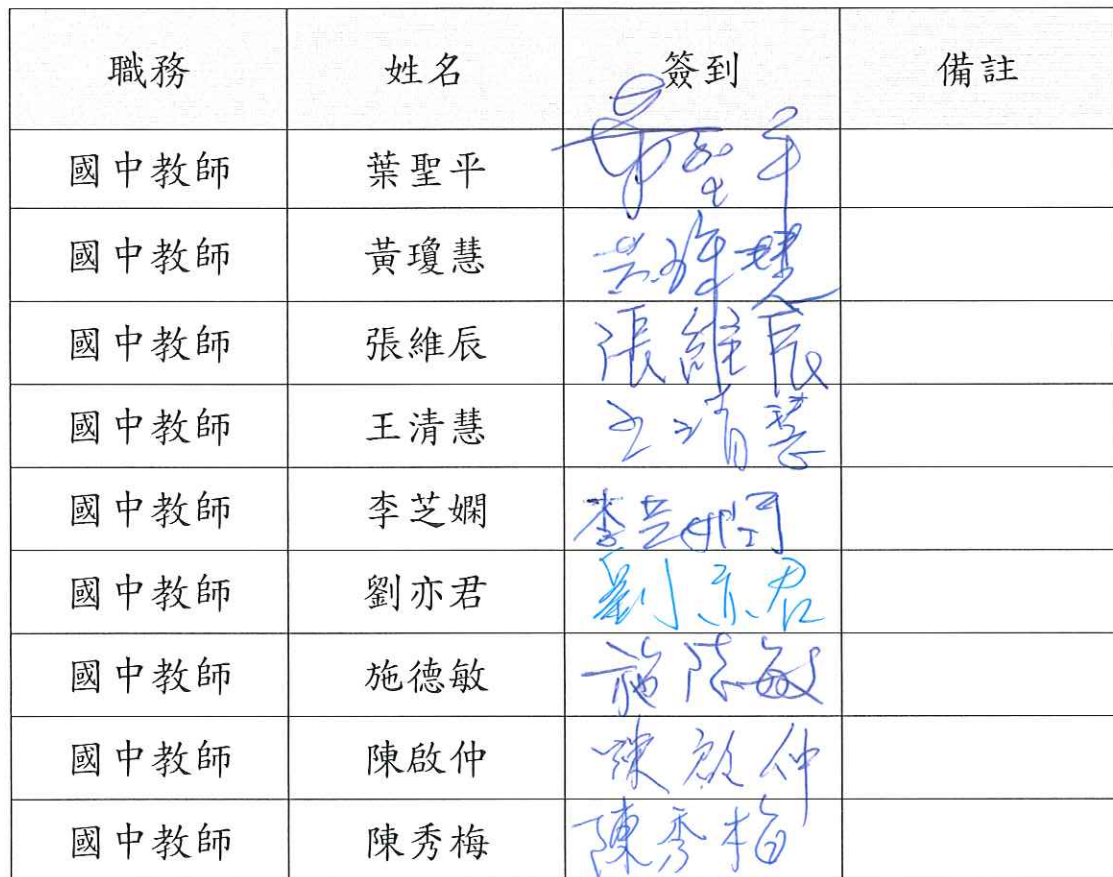 職務 姓名 簽到 備註
國中教師 葉聖平 葉聖平
國中教師 黃瓊慧 黃瓊慧
國中教師 張維辰 張維辰
國中教師 王清慧 王清慧
國中教師 李芝嫻 李芝嫻
國中教師 劉亦君 劉亦君
國中教師 施德敏 施德敏
國中教師 陳啟仲 陳啟仲
國中教師 陳秀梅 陳秀梅